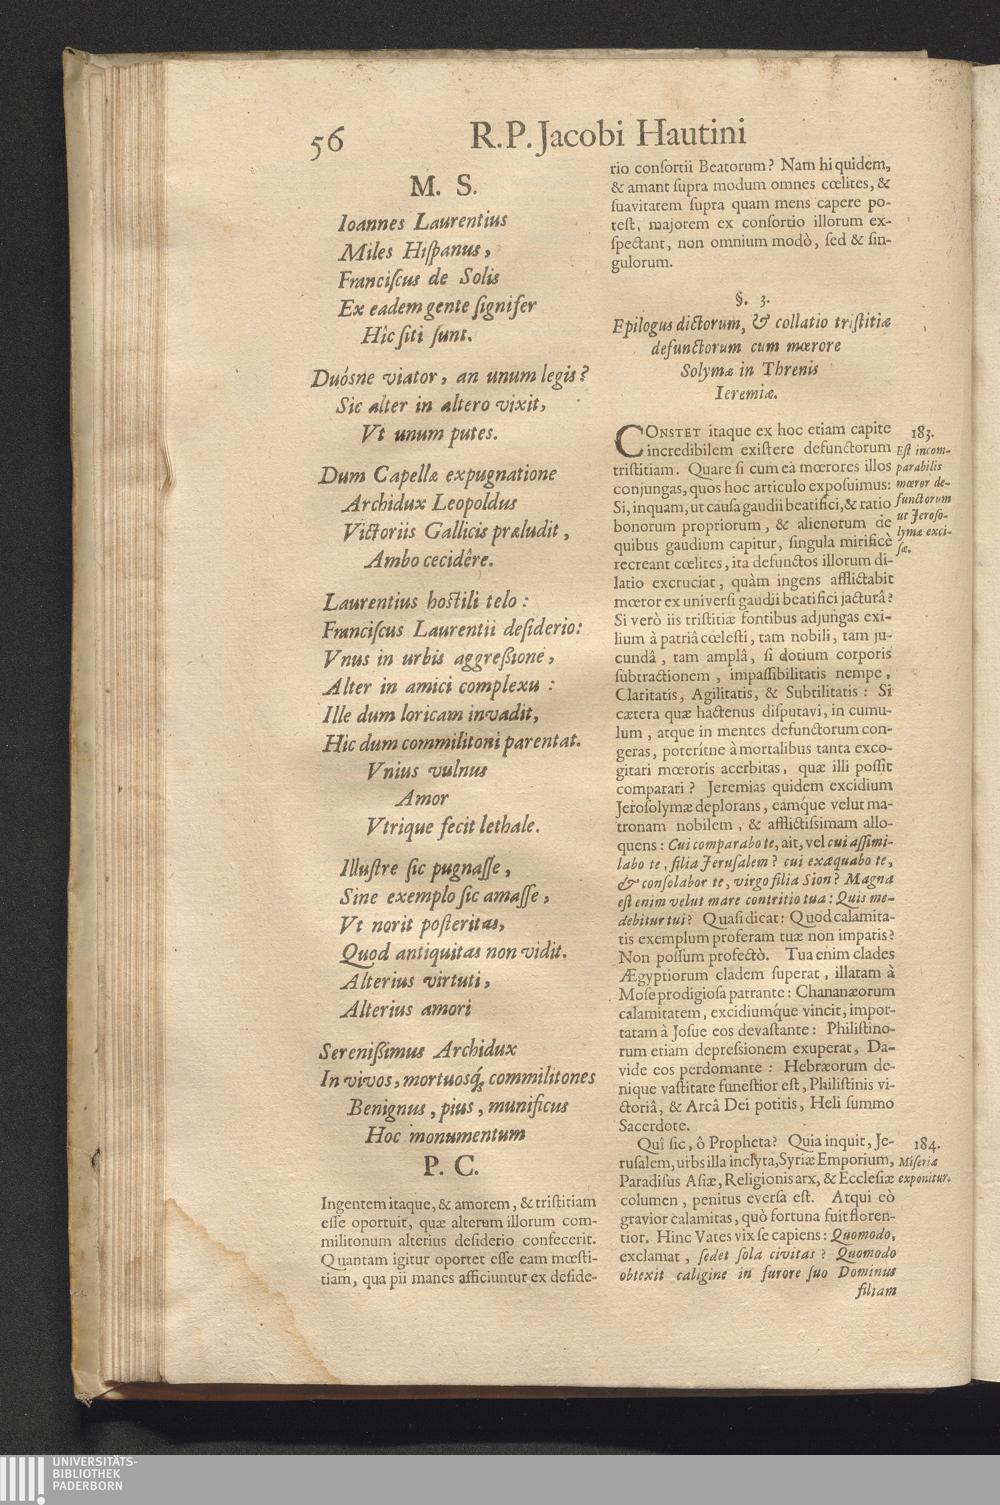 56
R. P. Jacobi Hautini
M. S.
Ioannes Laurentius
Miles Hiſpanus,
Franciſcus de Solis
Ex eadem gente ſignifer
Hîc ſiti ſunt.
Duósne viator, an unum legis?
Sic alter in altero vixit,
Vt unum putes.
Dum Capellæ expugnatione
Archidux Leopoldus
Victoriis Gallicis præludit,
Ambo cecidêre.
Laurentius hoſtili telo:
Franciſcus Laurentii deſiderio:
Vnus in urbis aggreßione,
Alter in amici complexu:
Ille dum loricam invadit,
Hic dum commilitoni parentat.
Vnius vulnus
Amor
Vtrique fecit lethale.
Illuſtre ſic pugnaſſe,
Sine exemplo ſic amaſſe,
Vt norit poſteritas,
Quod antiquitas non vidit.
Alterius virtuti,
Alterius amori
Sereniſſimus Archidux
In vivos, mortuosq́; commilitones
Benignus, pius, munificus
Hoc monumentum
P. C.
Ingentem itaque, & amorem, & triſtitiam
eſſe oportuit, quæ alterum illorum com-
militonum alterius deſiderio confecerit.
Quantam igitur oportet eſſe eam mœſti-
tiam, qua pii manes afficiuntur ex deſide-
rio conſortii Beatorum? Nam hi quidem,
& amant ſupra modum omnes cœlites, &
ſuavitatem ſupra quam mens capere po-
teſt, majorem ex conſortio illorum ex-
ſpectant, non omnium modò, ſed & ſin-
gulorum.
§. 3.
Epilogus dictorum, & collatio triſtitiæ
defunctorum cum mœrore
Solymæ in Threnis
Ieremiæ.
CONSTET itaque ex hoc etiam capite
incredibilem exiſtere defunctorum
triſtitiam. Quare ſi cum eâ mœrores illos
conjungas, quos hoc articulo expoſuimus:
Si, inquam, ut cauſa gaudii beatifici, & ratio
bonorum propriorum, & alienorum de
quibus gaudium capitur, ſingula mirificè
recreant cœlites, ita defunctos illorum di-
latio excruciat, quàm ingens afflictabit
mœror ex univerſi gaudii beatifici jacturâ?
Si verò iis triſtitiæ fontibus adjungas exi-
lium à patriâ cœleſti, tam nobili, tam ju-
cundâ, tam amplâ, ſi dotium corporis
ſubtractionem, impaſſibilitatis nempe,
Claritatis, Agilitatis, & Subtilitatis: Si
cætera quæ hactenus diſputavi, in cumu-
lum, atque in mentes defunctorum con-
geras, poterítne à mortalibus tanta exco-
gitari mœroris acerbitas, quæ illi poſſit
comparari? Jeremias quidem excidium
Jeroſolymæ deplorans, eamq́ue velut ma-
tronam nobilem, & afflictiſsimam allo-
quens: Cui comparabo te, ait, vel cui aſſimi-
labo te, filia Jeruſalem? cui exæquabo te,
& conſolabor te, virgo filia Sion? Magna
eſt enim velut mare contritio tua: Quis me-
debitur tui? Quaſi dicat: Quod calamita-
tis exemplum proferam tuæ non imparis?
Non poſſum profectò. Tua enim clades
Ægyptiorum cladem ſuperat, illatam à
Moſe prodigioſa patrante: Chananæorum
calamitatem, excidiumq́ue vincit, impor-
tatam à Joſue eos devaſtante: Philiſtino-
rum etiam depreſsionem exuperat, Da-
vide eos perdomante: Hebræorum de-
nique vaſtitate funeſtior eſt, Philiſtinis vi-
ctoriâ, & Arcâ Dei potitis, Heli ſummo
Sacerdote.
Quî ſic, ô Propheta? Quia inquit, Je-
ruſalem, urbs illa inclyta, Syriæ Emporium,
Paradiſus Aſiæ, Religionis arx, & Eccleſiæ
columen, penitus everſa eſt. Atqui eò
gravior calamitas, quò fortuna fuit floren-
tior. Hinc Vates vix ſe capiens: Quomodo,
exclamat, ſedet ſola civitas? Quomodo
obtexit caligine in furore ſuo Dominus
filiam
183.
Eſt incom-
parabilis
mœror de-
functorum
ut Jeroſo-
lymæ exci-
ſæ.
184.
Miſeria
exponitur.
UNIVERSITÄTS-
BIBLIOTHEK
PADERBORN